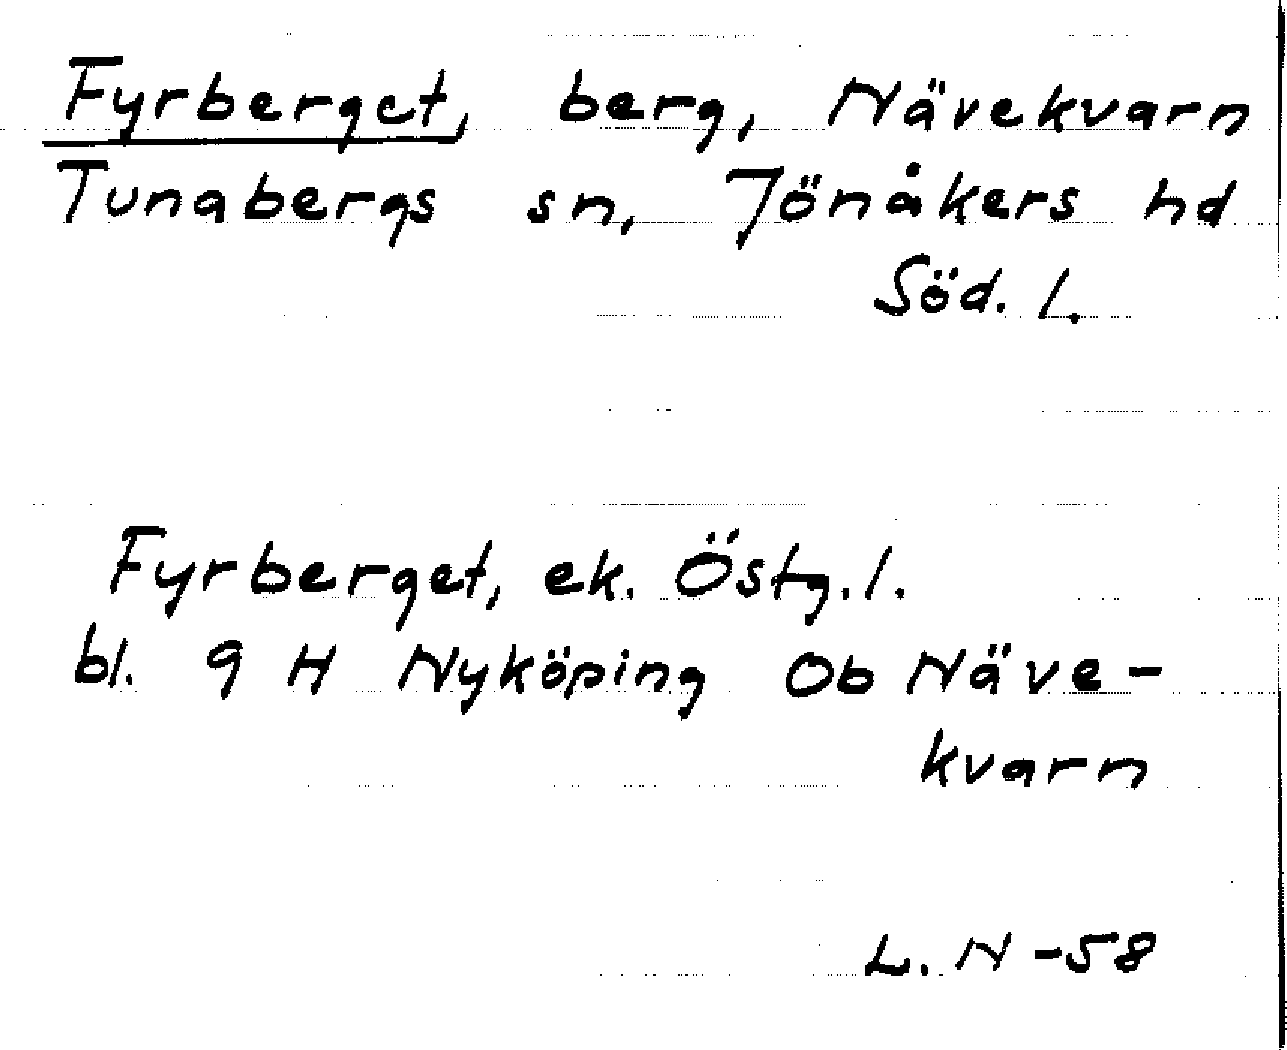 Fyrberget, berg, Nävekvarn
Tunabergs sn, Jönåkers hd
Söd. l.
Fyrberget, ek. Östg. l.
bl. 9 H Nyköping 0b Näve-
kvarn
L. N -58